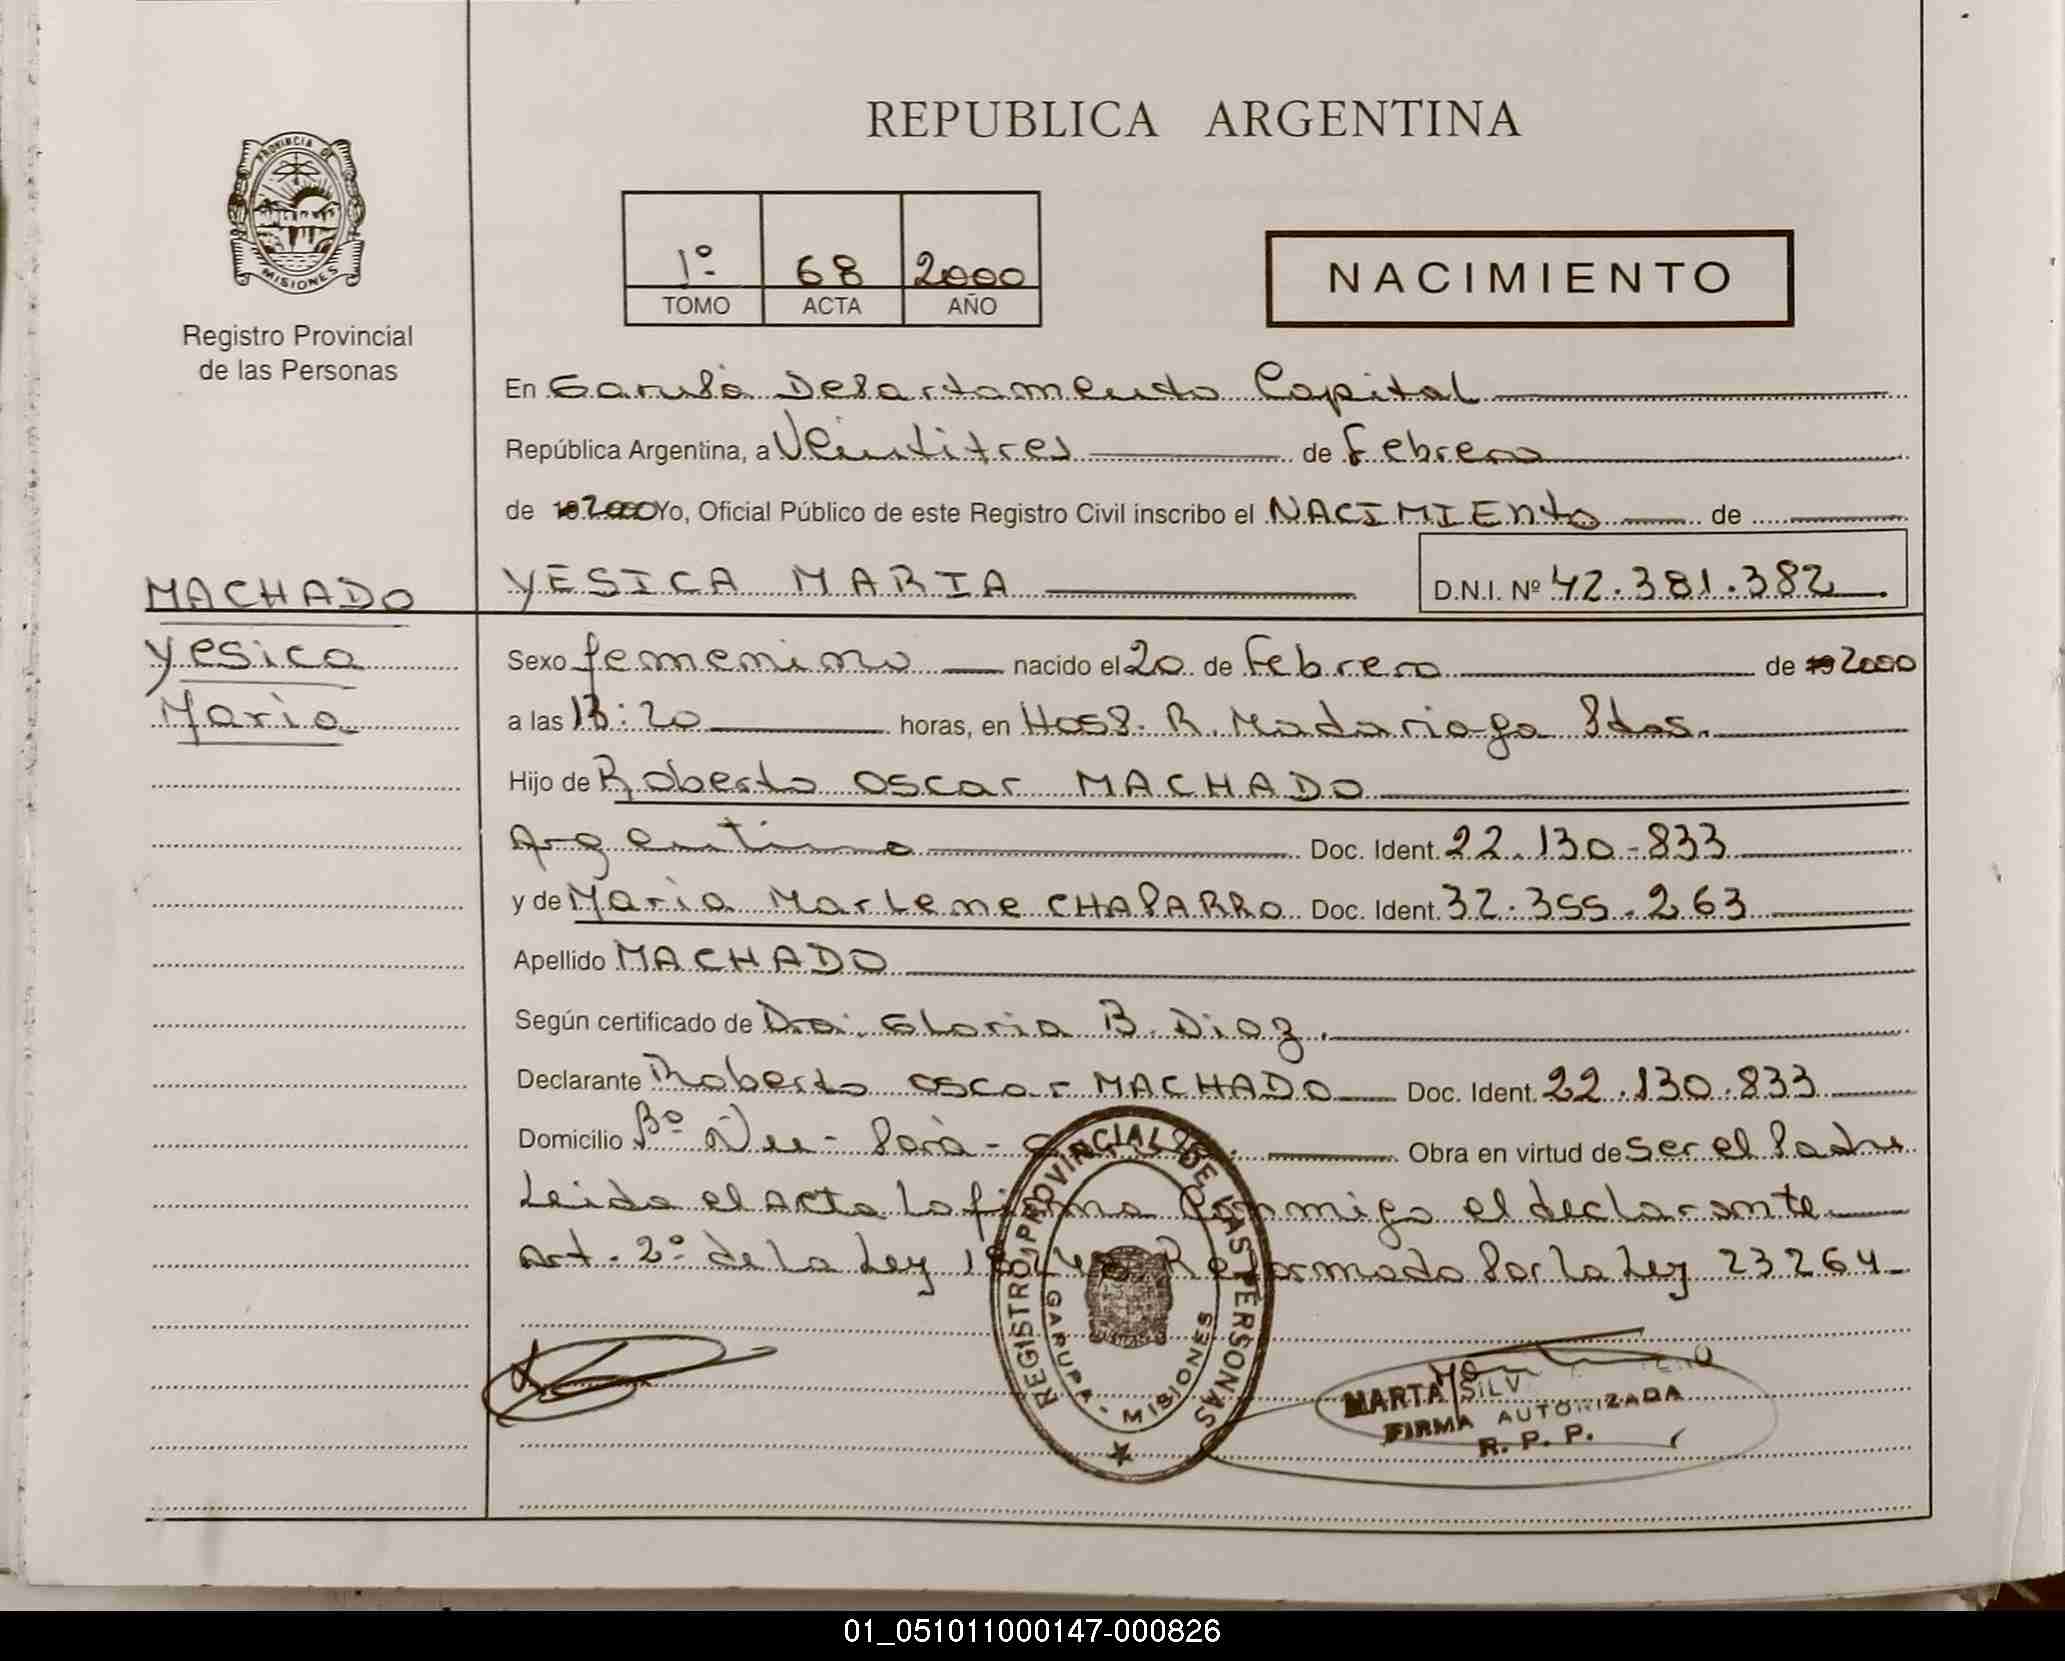 REPUBLICA ARGENTINA
PROVINCIA DE
MISIONES
Registro Provincial
de las Personas
1º 68 2000
TOMO ACTA AÑO
NACIMIENTO
En Garupá Departamento Capital
República Argentina, a Veintitres de Febrero
de 2000 Yo, Oficial Público de este Registro Civil inscribo el NACIMIENTO de
MACHADO
Yesica
Maria
YESICA MARIA D.N.I. Nº 42.381.382
Sexo femenino nacido el 20 de Febrero de 2000
a las 13:20 horas, en Hosp. R. Madariaga Pdas.
Hijo de Roberto Oscar MACHADO
Argentino Doc. Ident. 22.130-833
y de Maria Marlene CHAPARRO Doc. Ident. 32.355.263
Apellido MACHADO
Según certificado de Dra. Gloria B. Diaz.
Declarante Roberto Oscar MACHADO Doc. Ident. 22.130.833
Domicilio Bº Ñu - Porá - Obra en virtud de ser el Padre
Leida el Acta la firma conmigo el declarante
Art. 2º de la Ley Reformada Por la Ley 23264
REGISTRO PROVINCIAL DE LAS PERSONAS
GARUPA - MISIONES
MARTA
FIRMA AUTORIZADA
R. P. P.
01_051011000147-000826